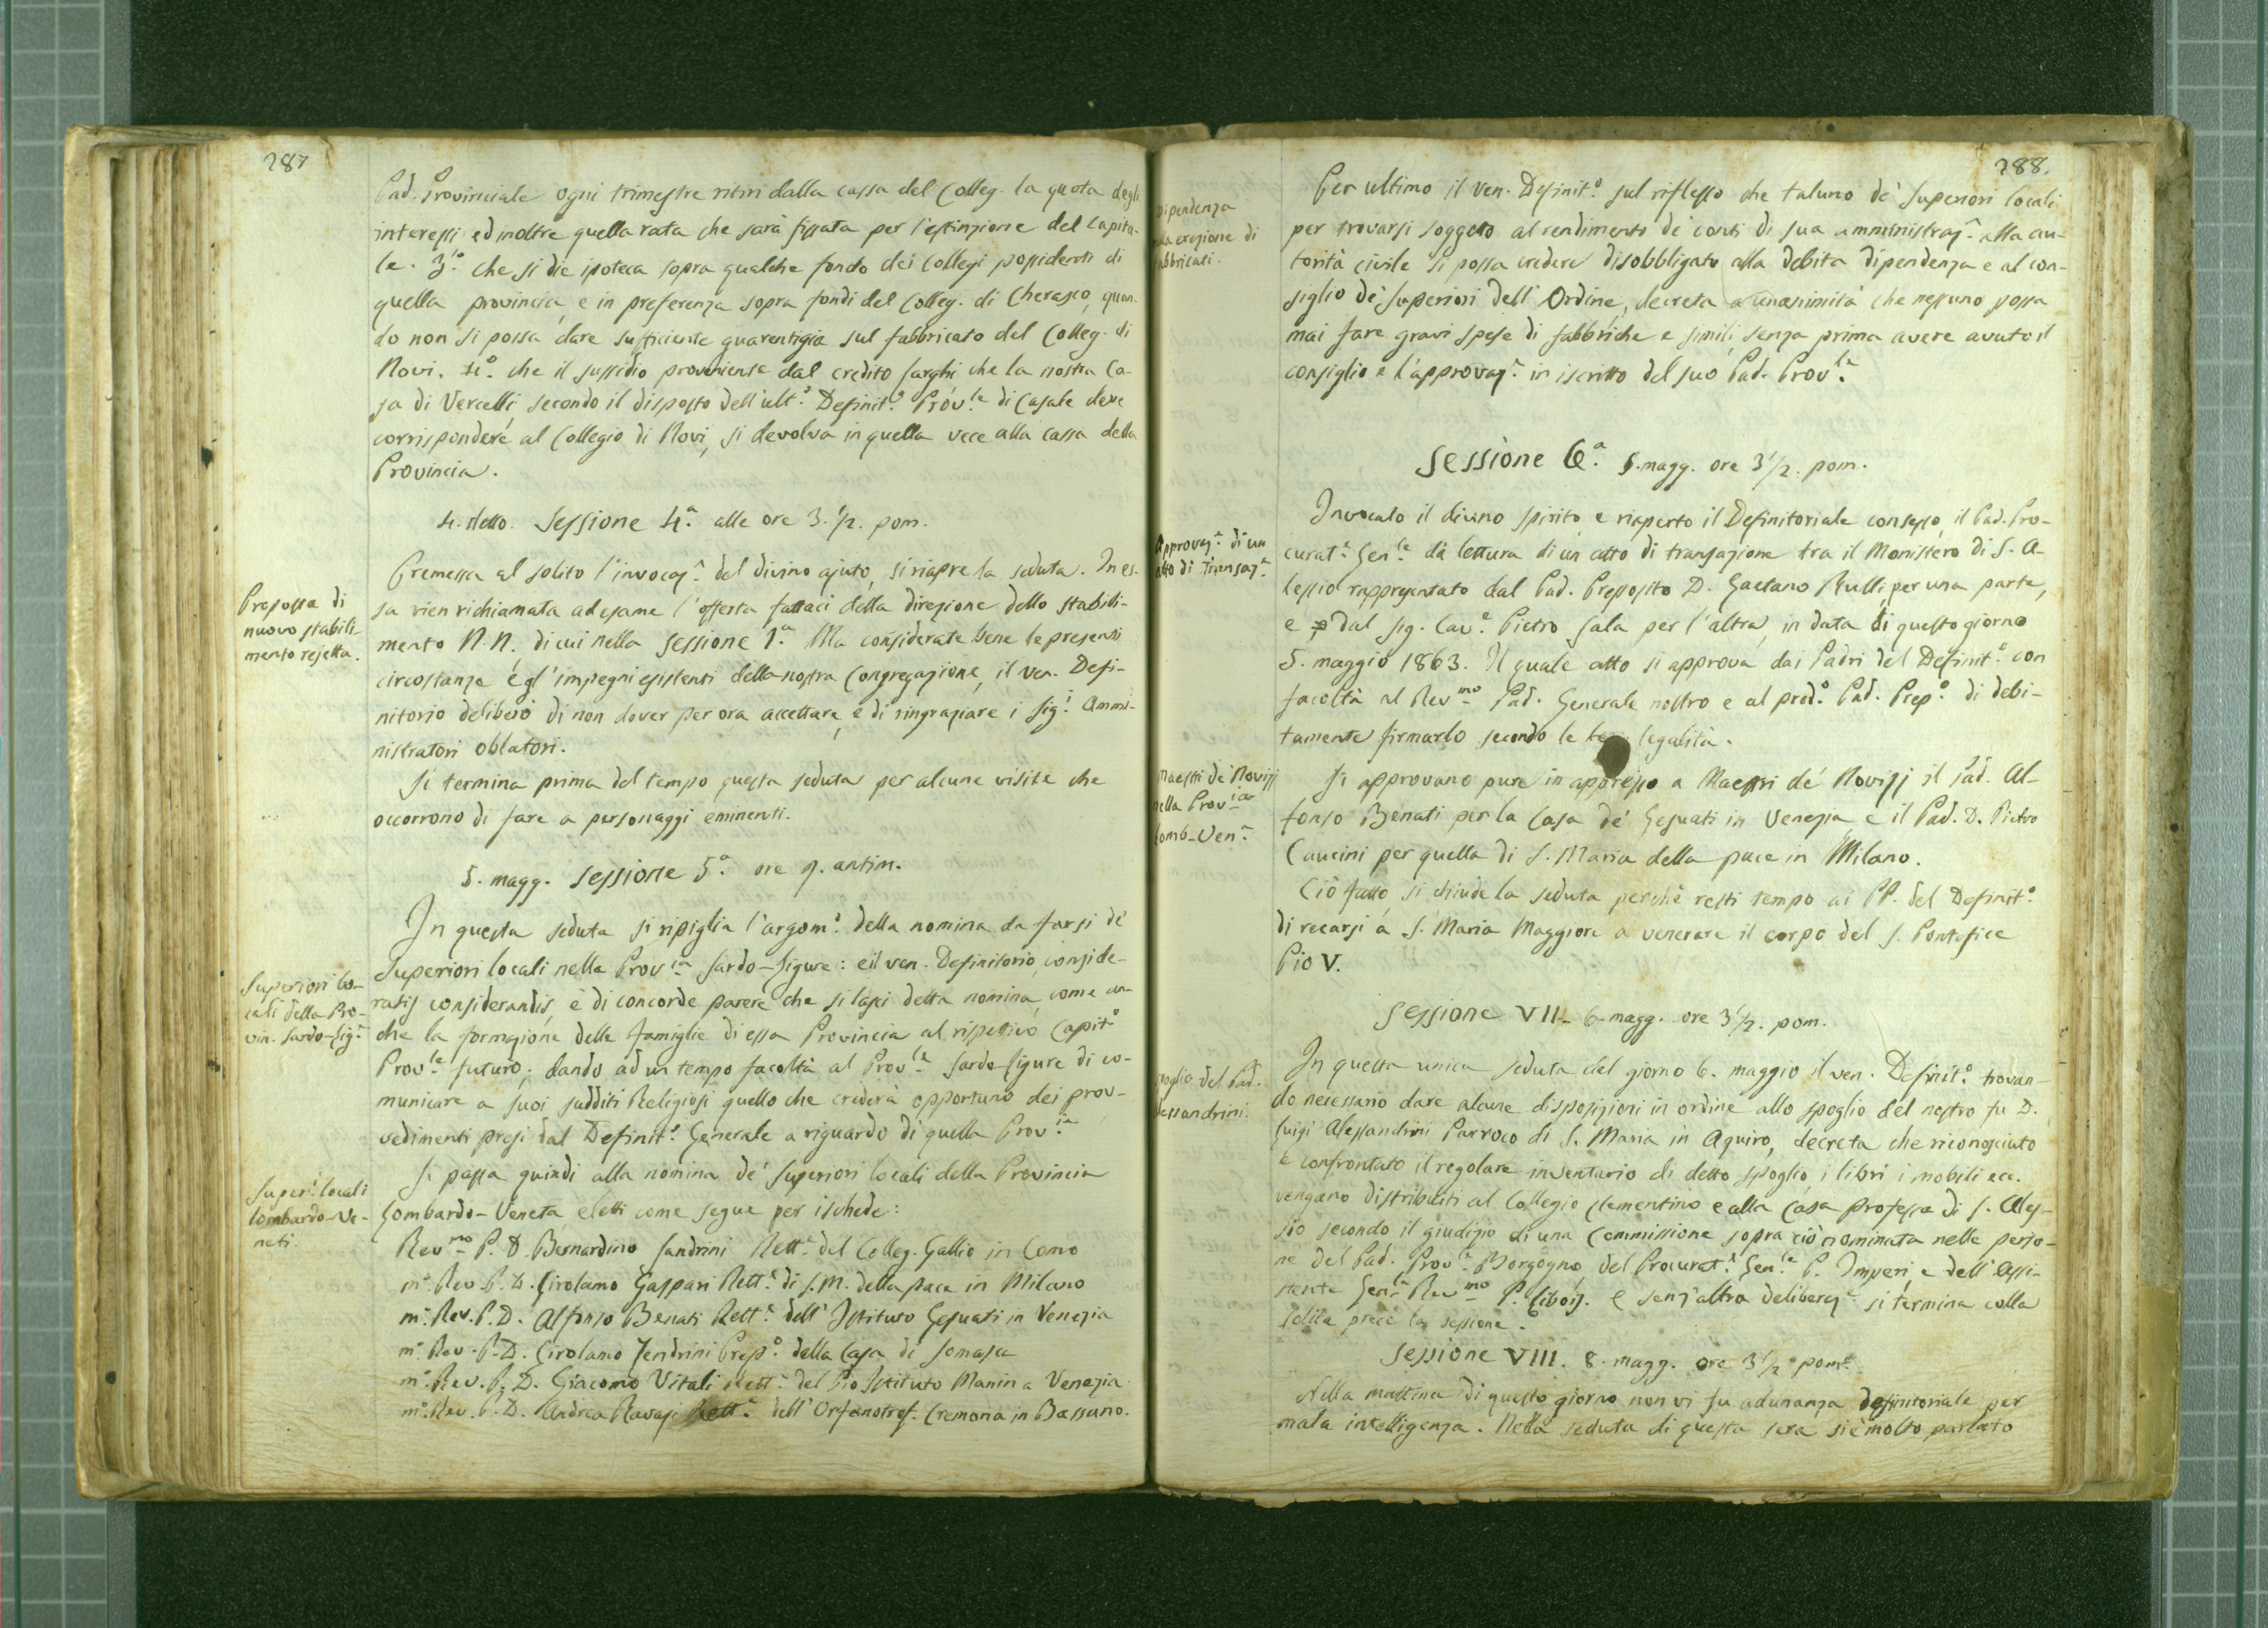 287
Pad. Provinciale ogni trimestre ritiri dalla cassa del Colleg. la quota degli
interessi ed inoltre quella rata che sarà fissata per l'estinzione del capita-
le. 3.° che si die ipoteca sopra qualche fondo dei Collegi possidenti di
quella provincia, e in preferenza sopra fondi del Colleg. di Cherasco, quan-
do non si possa dare sufficiente guarentigia sul fabbricato del Colleg. di
Novi. 4.° che il sussidio proveniente dal credito Sarghi che la nostra Ca-
sa di Vercelli secondo il disposto dell'ult.° Definit.° Prov.le di Casale deve
corrispondere al Collegio di Novi, si devolva in quella vece alla cassa della
Provincia.
4. detto. Sessione 4.a alle ore 3. 1/2. pom.
Premessa al solito l'invocaz.e del divino ajuto, si riapre la seduta. In es-
Proposta di
nuovo stabili-
mento rejetta.
sa vien richiamata ad esame l'offerta fattaci della direzione dello stabili-
mento N.N. di cui nella sessione 1.a Ma considerate bene le presenti
circostanze e gl'impegni esistenti della nostra Congregazione, il ven. Defi-
nitorio deliberò di non dover per ora accettare, e di ringraziare i Sig.i Ammi-
nistratori oblatori.
Si termina prima del tempo questa seduta per alcune visite che
occorrono di fare a personaggi eminenti.
5. magg. Sessione 5.a ore 9. antim.
In questa seduta si ripiglia l'argom.° della nomina da farsi de'
Superiori lo-
cali della Pro-
vin. Sardo-Lig.e
Superiori locali nella Prov.ia Sardo-Ligure: e il ven. Definitorio, conside-
ratis considerandis, è di concorde parere che si lasci detta nomina, come an-
che la formazione delle famiglie di essa Provincia al rispettivo Capit.°
Prov.le futuro; dando ad un tempo facoltà al Prov.le Sardo Ligure di co-
municare a suoi sudditi Religiosi quello che crederà opportuno dei prov-
vedimenti presi dal Definit.° Generale a riguardo di quella Prov.ia
Super.i locali
lombardo-Ve-
neti.
Si passa quindi alla nomina de' Superiori locali della Provincia
Lombardo-Veneta, eletti come segue per ischede:
Rev.mo P. D. Bernardino Sandrini Rett.e del Colleg. Gallio in Como
m.° Rev. P. D. Girolamo Gaspari Rett.e di S. M. della pace in Milano
m.° Rev. P. D. Alfonso Benati Rett.e dell'Istituto Gesuati in Venezia
m.° Rev. P. D. Girolamo Zendrini Prep.° della Casa di Somasca
m.° Rev. P. D. Giacomo Vitali Rett.e del Pio Istituto Manin a Venezia
m.° Rev. P. D. Andrea Ravasi Rett.e dell'Orfanotrof. Cremona in Bassano.
288.
Dipendenza
nella erezione di
fabbricati.
Per ultimo il ven. Definit.° sul riflesso che taluno de' Superiori locali
per trovarsi soggetto al rendimento de' conti di sua amministraz.e alla au-
torità civile si possa credere disobbligato alla debita dipendenza e al con-
siglio de' Superiori dell'Ordine, decreta a unanimità che nessuno possa
mai fare gravi spese di fabbriche e simili senza prima avere avuto il
consiglio e l'approvaz.e in iscritto del suo Pad. Prov.le
Sessione 6.a 5. magg. ore 3 1/2. pom.
Approvaz.e di un
atto di Transaz.e
Invocato il divino spirito e riaperto il Definitoriale consesso, il Pad. Pro-
curat.e Gen.le dà lettura di un atto di transazione tra il Monistero di S. A-
lessio rappresentato dal Pad. Preposito D. Gaetano Rulli, per una parte,
e dal Sig. Cav.e Pietro Sala per l'altra, in data di questo giorno
5. maggio 1863. Il quale atto si approva dai Padri del Definit.° con
facoltà al Rev.mo Pad. Generale nostro e al pred.° Pad. Prep.° di debi-
tamente firmarlo secondo le legalità.
Maestri de' Novizj
nella Prov.ia
Lomb-Ven.a
Si approvano pure in appresso a Maestri de' Novizj il Pad. Al-
fonso Benati per la Casa de' Gesuati in Venezia e il Pad. D. Pietro
Caucini per quella di S. Maria della pace in Milano.
Ciò fatto, si chiude la seduta perchè resti tempo ai PP. del Definit.°
di recarsi a S. Maria Maggiore a venerare il corpo del S. Pontefice
Pio V.
Sessione VII- 6. magg. ore 3 1/2. pom.
Spoglio del Pad.
Alessandrini.
In questa unica seduta del giorno 6. maggio il ven. Definit.° trovan-
do necessario dare alcune disposizioni in ordine allo spoglio del nostro fu D.
Luigi Alessandrini Parroco di S. Maria in Aquiro, decreta che riconosciuto
e confrontato il regolare inventario di detto spoglio, i libri i mobili ecc.
vengano distribuiti al Collegio Clementino e alla Casa professa di S. Ales-
sio secondo il giudizio di una Commissione sopra ciò nominata nelle perso-
ne del Pad. Prov.e Borgogno, del Procurat.e Gen.le P. Imperi, e dell'Assi-
stente Gen.le Rev.mo P. Libois. E senz'altra deliberaz.e si termina colla
solita prece la sessione.
Sessione VIII. 8. magg. ore 3 1/2 pom.e
Nella mattina di questo giorno non vi fu adunanza definitoriale per
mala intelligenza. Nella seduta di questa sera si è molto parlato